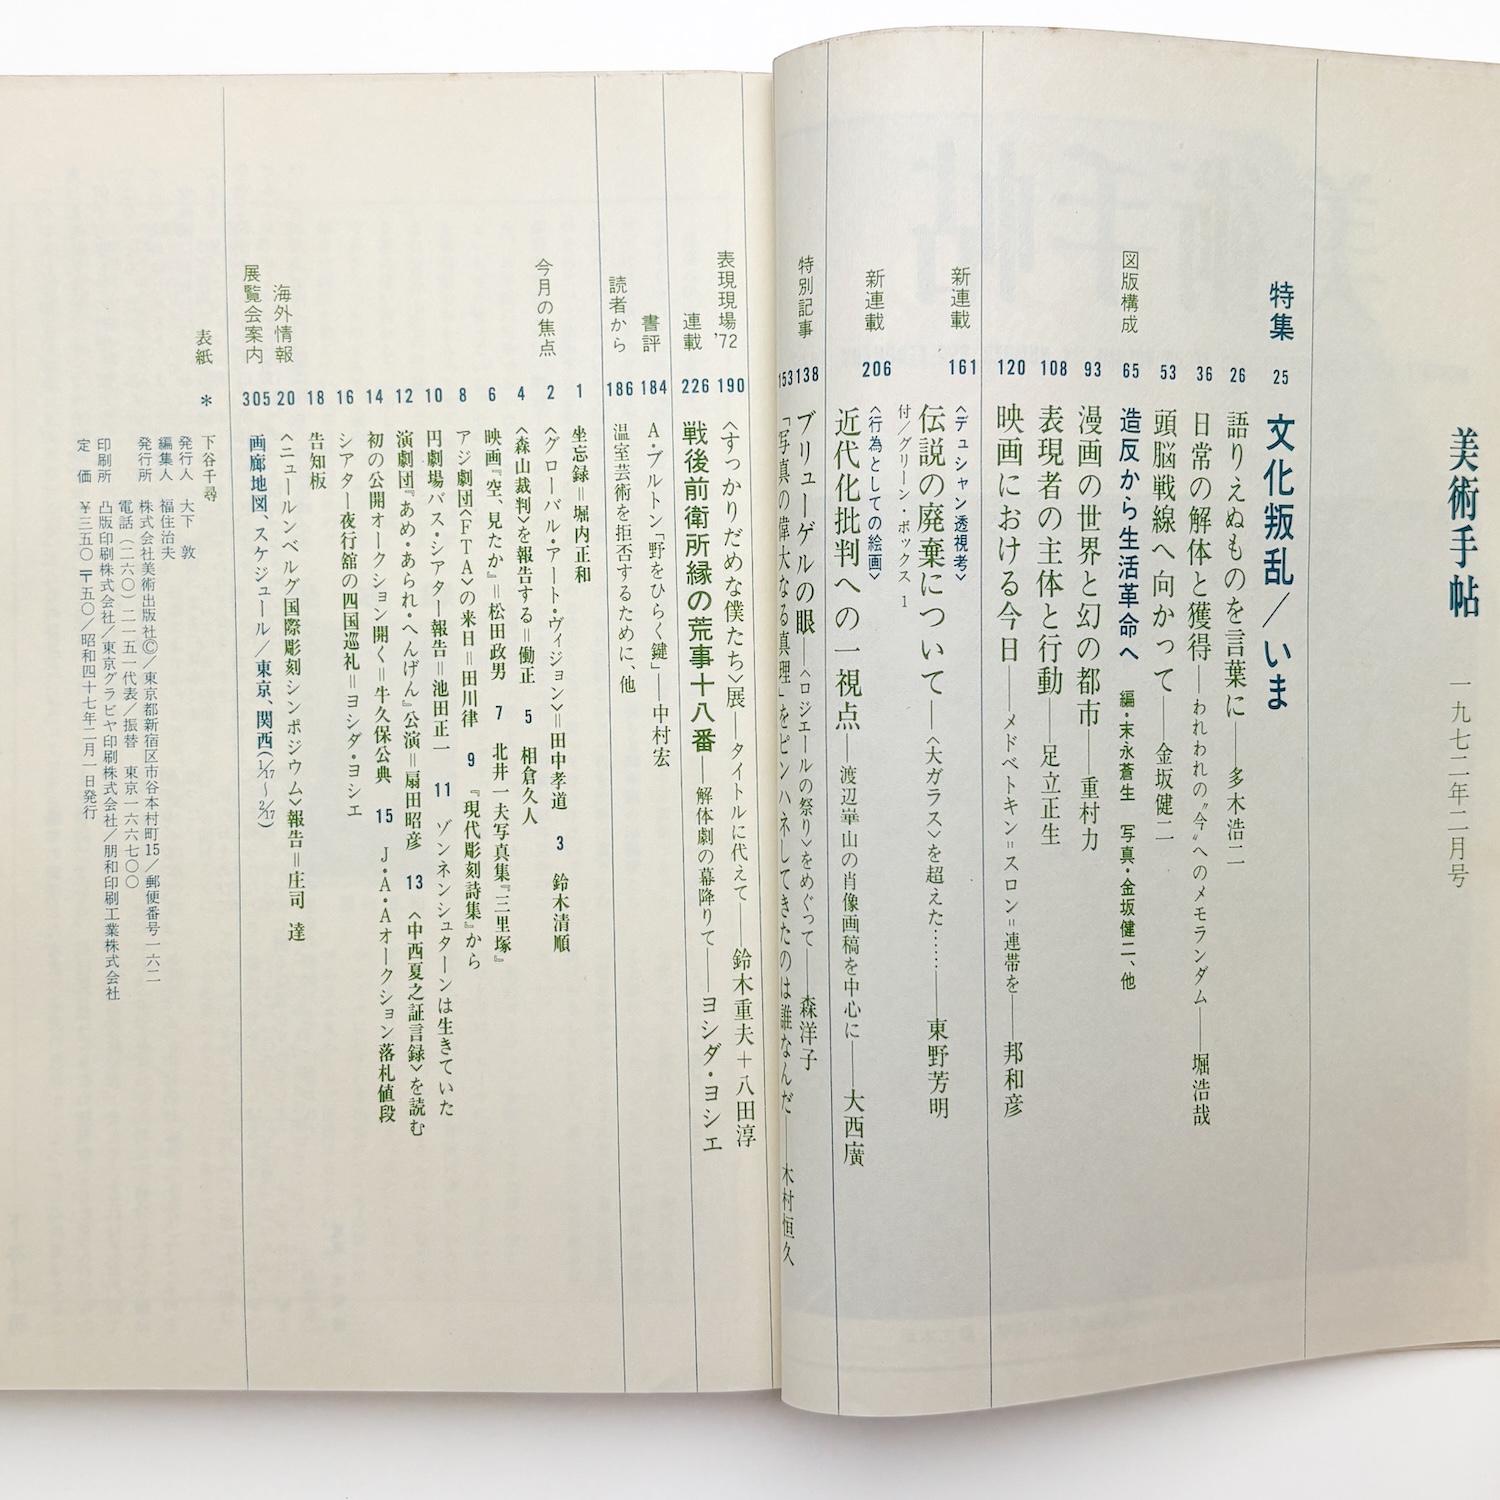 美術手帖 一九七二年二月号
特集 25 文化叛乱／いま
26 語りえぬものを言葉に——多木浩二
36 日常の解体と獲得——われわれの〝今〟へのメモランダム——堀浩哉
53 頭脳戦線へ向かって——金坂健二
図版構成 65 造反から生活革命へ 編・末永蒼生 写真・金坂健二、他
93 漫画の世界と幻の都市——重村力
108 表現者の主体と行動——足立正生
120 映画における今日——メドベトキン＝スロン＝連帯を——邦和彦
新連載 161 〈デュシャン透視考〉
伝説の廃棄について——〈大ガラス〉を超えた……——東野芳明
付／グリーン・ボックス 1
新連載 206 〈行為としての絵画〉
近代化批判への一視点——渡辺崋山の肖像画稿を中心に——大西廣
特別記事 138 ブリューゲルの眼——〈ロジエールの祭り〉をめぐって——森洋子
153 「写真の偉大なる真理」をピンハネしてきたのは誰なんだ——木村恒久
表現現場'72 190 〈すっかりだめな僕たち〉展——タイトルに代えて——鈴木重夫＋八田淳
連載 226 戦後前衛所縁の荒事十八番——解体劇の幕降りて——ヨシダ・ヨシエ
書評 184 A・ブルトン「野をひらく鍵」——中村宏
読者から 186 温室芸術を拒否するために、他
今月の焦点 1 坐忘録＝堀内正和
2 〈グローバル・アート・ヴィジョン〉＝田中孝道 3 鈴木清順
4 〈森山裁判〉を報告する＝働正 5 相倉久人
6 映画『空、見たか』＝松田政男 7 北井一夫写真集『三里塚』
8 アジ劇団〈FTA〉の来日＝田川律 9 『現代彫刻詩集』から
10 円劇場バス・シアター報告＝池田正一 11 ゾンネンシュターンは生きていた
12 演劇団『あめ・あられ・へんげん』公演＝扇田昭彦 13 〈中西夏之証言録〉を読む
14 初の公開オークション開く＝牛久保公典 15 J・A・Aオークション落札値段
16 シアター夜行舘の四国巡礼＝ヨシダ・ヨシエ
18 告知板
海外情報 20 〈ニュールンベルグ国際彫刻シンポジウム〉報告＝庄司 達
展覧会案内 305 画廊地図、スケジュール／東京、関西(1/17〜2/17)
表紙 * 下谷千尋
発行人 大下 敦
編集人 福住治夫
発行所 株式会社美術出版社©／東京都新宿区市谷本村町15／郵便番号一六二
電話（二六〇）二一五一代表／振替 東京一六六七〇〇
印刷所 凸版印刷株式会社／東京グラビヤ印刷株式会社／朋和印刷工業株式会社
定 価 ¥三五〇 〒五〇／昭和四十七年二月一日発行